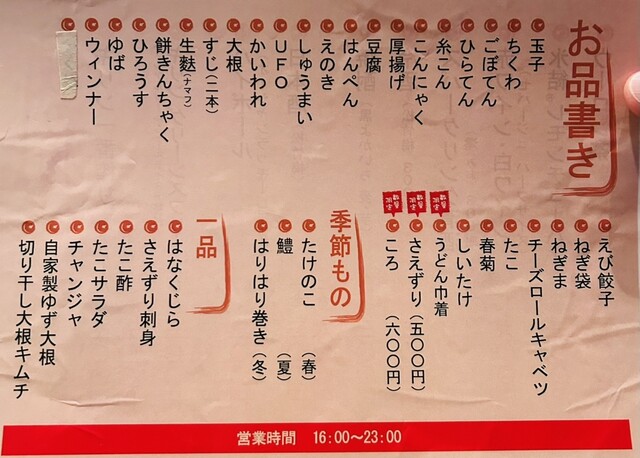 お品書き
玉子
ちくわ
ごぼてん
ひらてん
糸こん
こんにゃく
厚揚げ
豆腐
はんぺん
えのき
しゅうまい
UFO
かいわれ
大根
すじ（二本）
生麩（ナマフ）
餅きんちゃく
ひろうす
ゆば
ウィンナー
えび餃子
ねぎ袋
ねぎま
チーズロールキャベツ
たこ
春菊
しいたけ
うどん巾着
さえずり（五〇〇円）
ころ（六〇〇円）
季節もの
たけのこ（春）
鱧（夏）
はりはり巻き（冬）
一品
はなくじら
さえずり刺身
たこ酢
たこサラダ
チャンジャ
自家製ゆず大根
切り干し大根キムチ
営業時間 16:00〜23:00